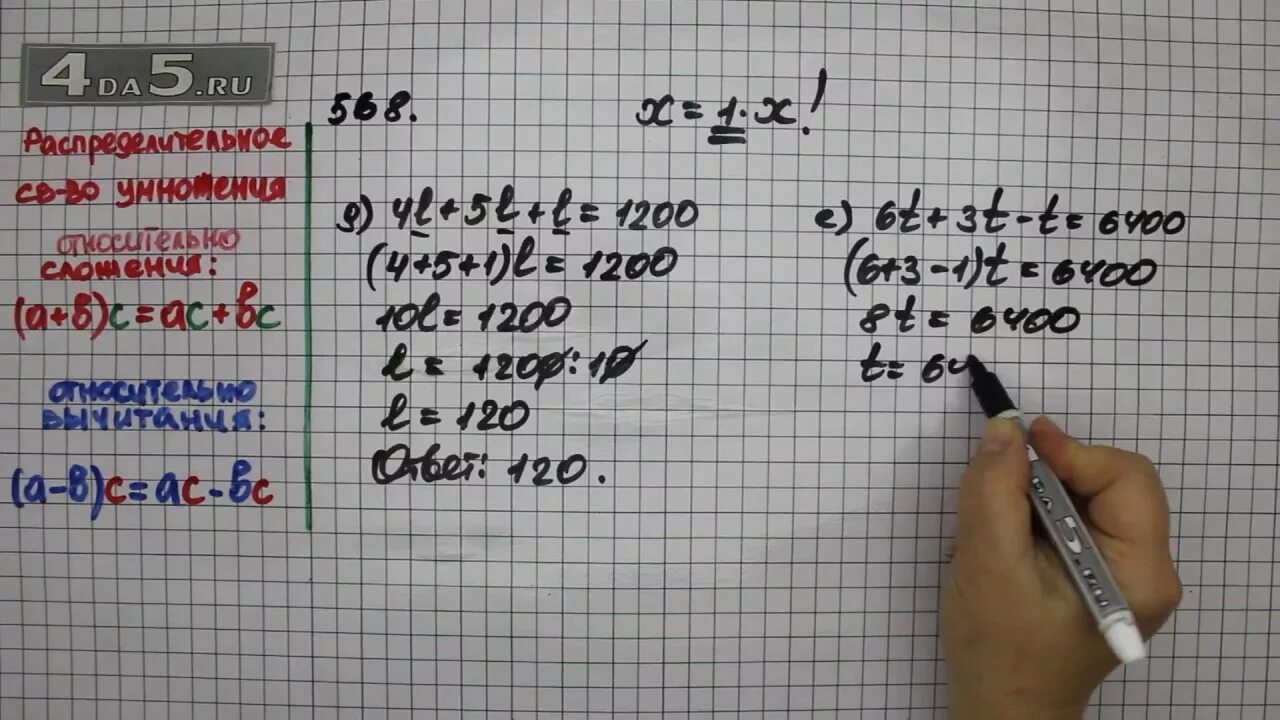 4DA5.RU
Распределительное
св-во умножения
относительно
сложения:
(а+в)с=ас+вс
относительно
вычитания:
(а-в)с=ас-вс
568.
x=1·x!
д) 4l+5l+l=1200
(4+5+1)l=1200
10l=1200
l=1200:10
l=120
Ответ: 120.
е) 6t+3t-t=6400
(6+3-1)t=6400
8t=6400
t=64